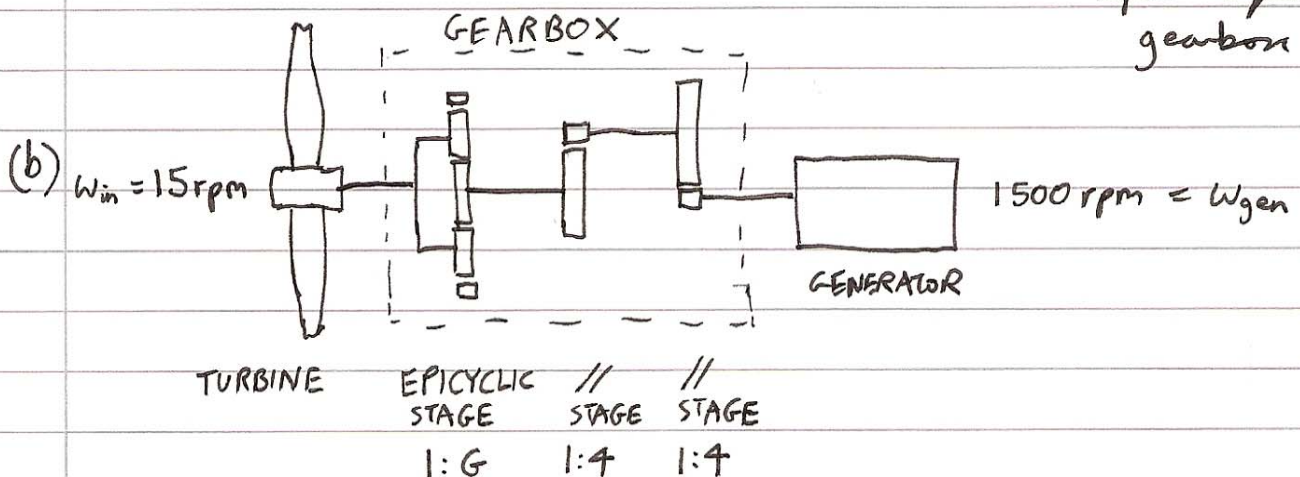 gearbox
GEARBOX
(b) ω_in = 15 rpm
1500 rpm = ω_gen
GENERATOR
TURBINE EPICYCLIC // //
STAGE STAGE STAGE
1:G 1:4 1:4